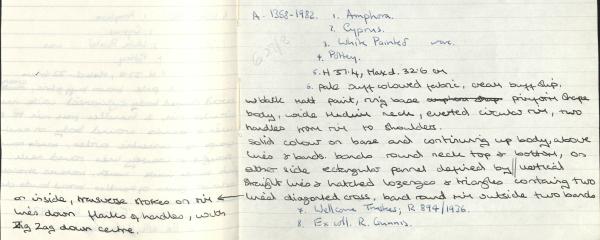 A. 1358-1982. 1. Amphora.
2. Cyprus.
3. White Painted ware.
4. Pottery.
5. H 37.4, Max d. 32.6 cm
6. pale buff coloured fabric, cream buff slip,
w black matt paint, ring base piriform shape
body, wide medium neck, everted circular rim, two
handles from rim to shoulders.
Solid colour on base and continuing up body, above
lines & bands. bands round neck top & bottom, on
either side rectangular pannel defined by vertical
straight lines & hatched lozenges & triangles containg two
lineal diagonal cross, band round rim outside two bands
on inside, transverse strokes on rim
lines down flanks of handles, with
Zig Zag down centre.
7. Wellcome Trustees; R. 894/1936.
8. Ex coll. R. Gunnis.